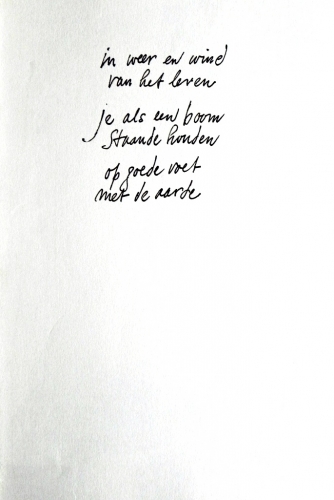 in weer en wind
van het leven
je als een boom
staande houden
op goede voet
met de aarde